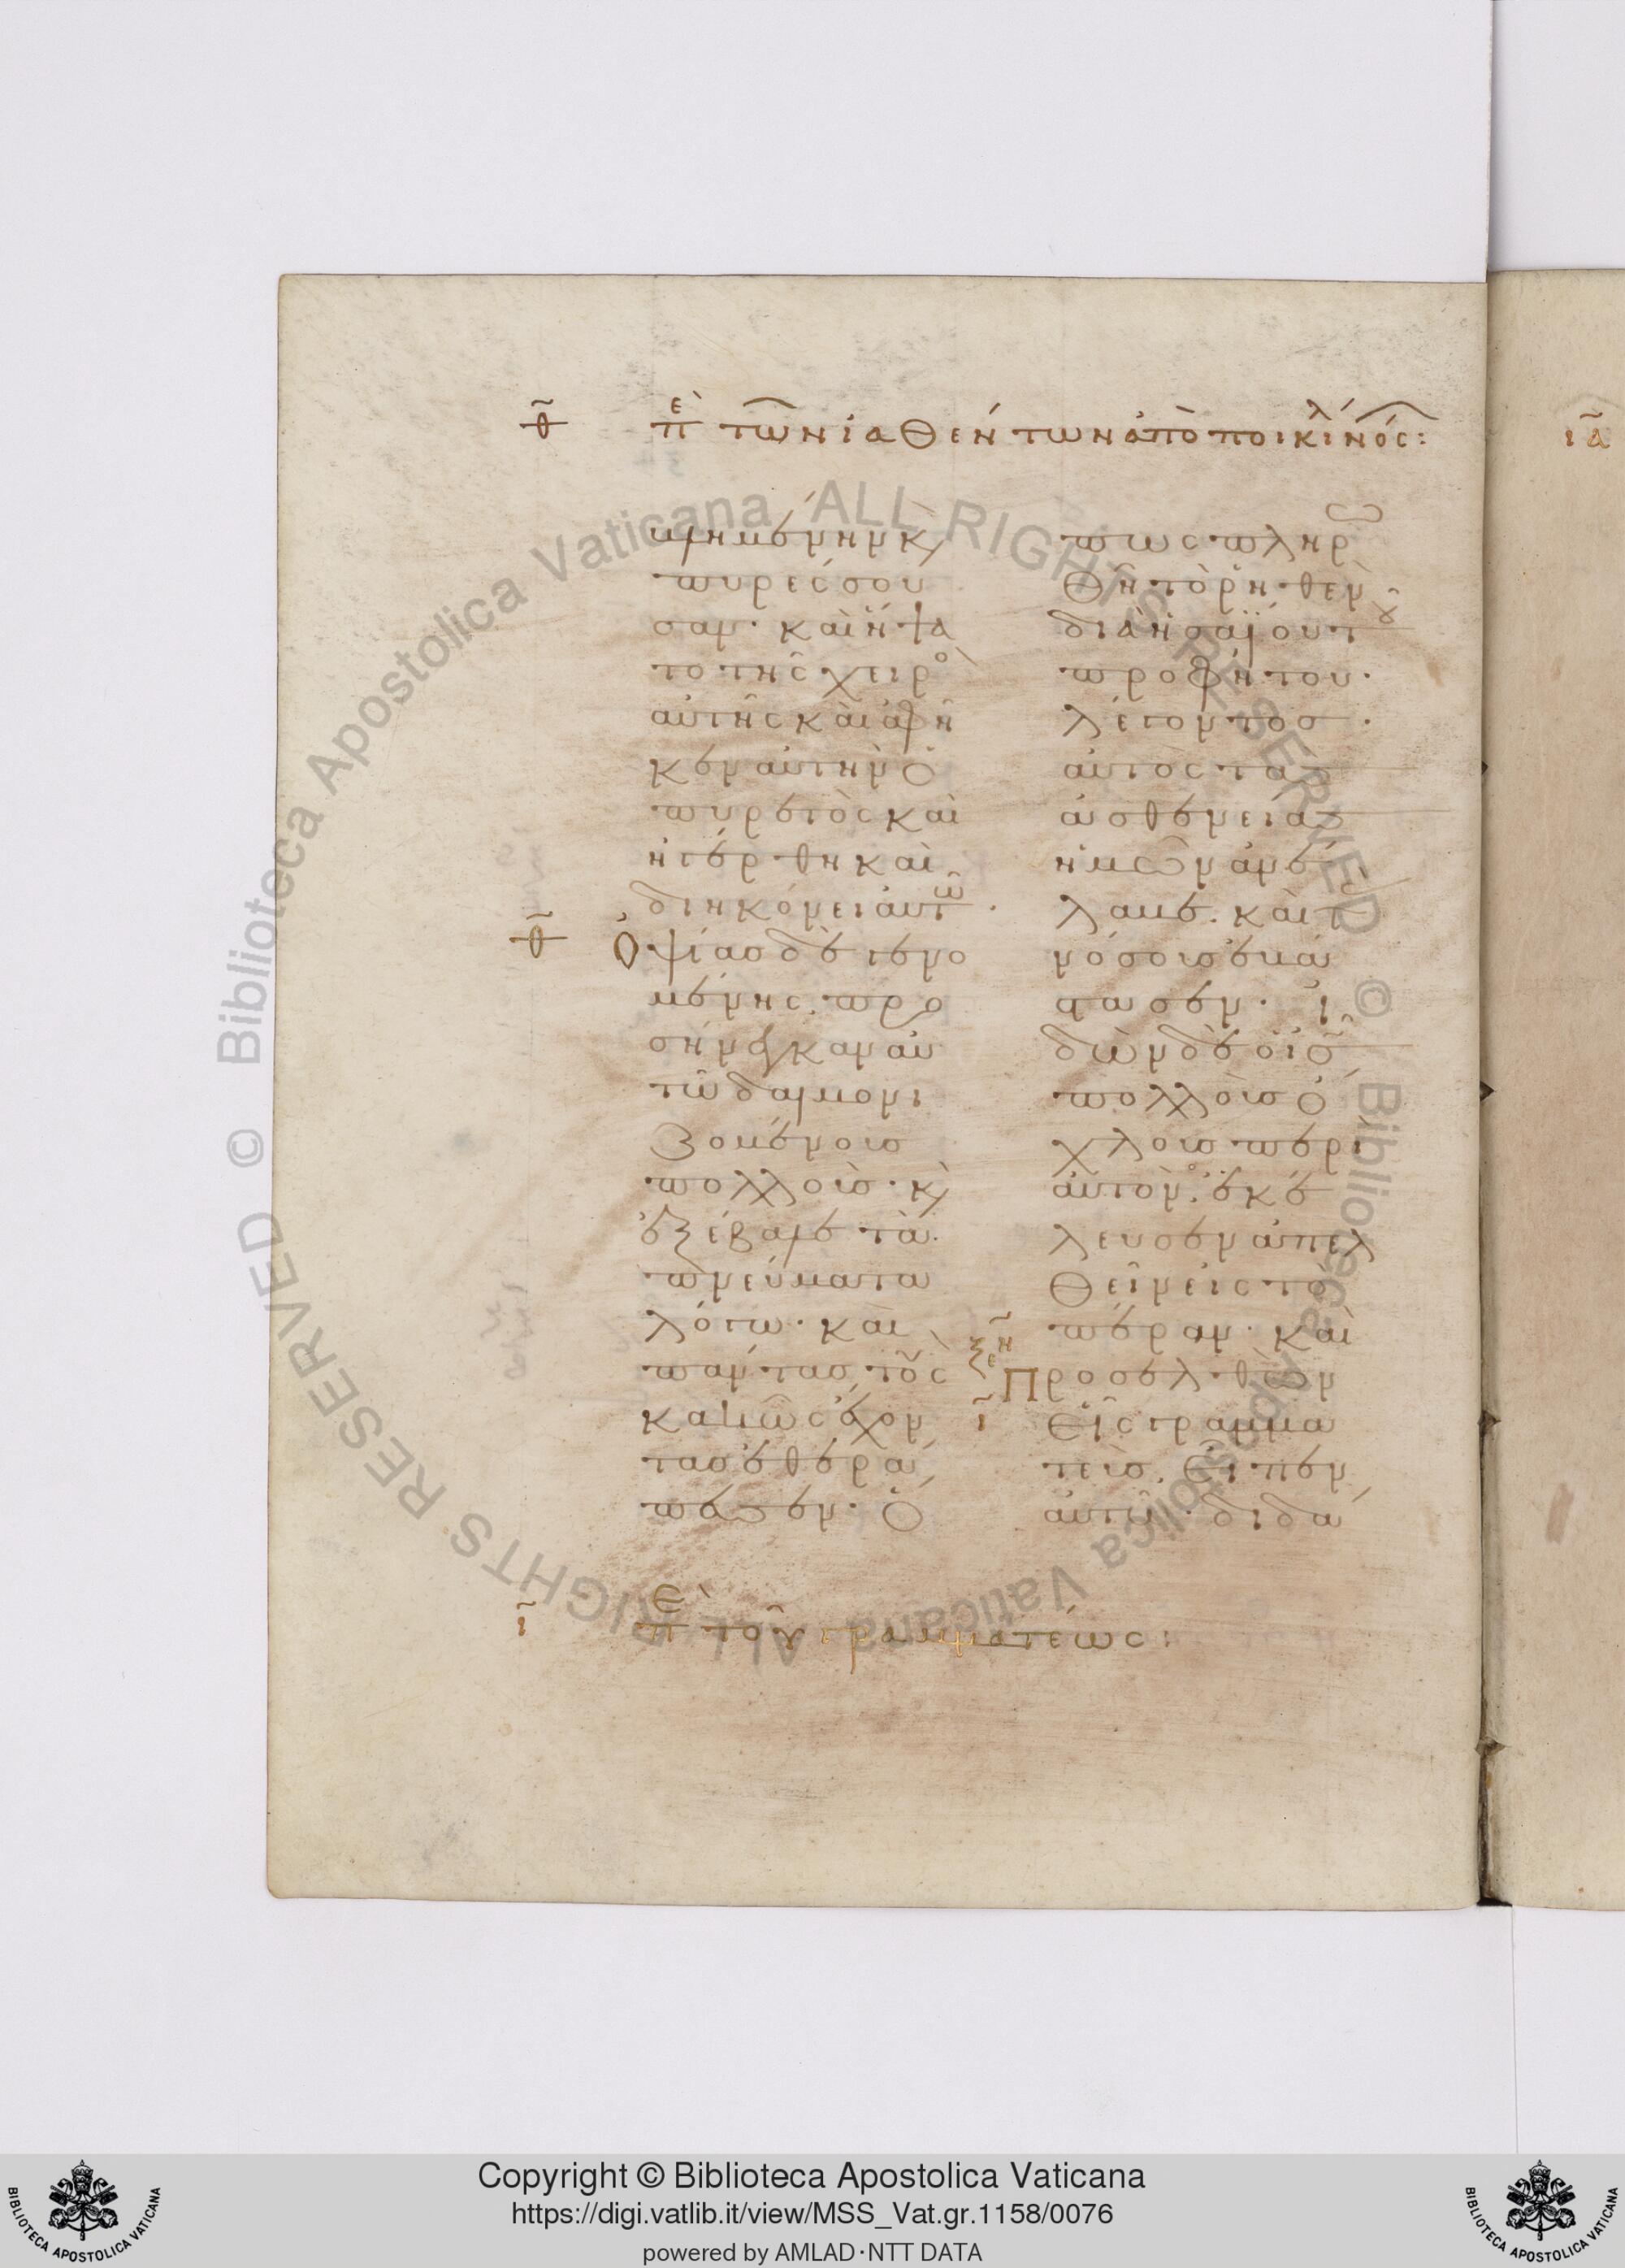 θ̄ πὲ τῶν ἰαθέντων ἀπὸ ποικίλ νόσ:
μένην κ̀
πυρέσσου
σαν· καὶ ἥψα
το τῆς χειρὸ
αὐτῆς καὶ ἀφῆ
κεν αὐτὴν ὁ
πυρετὸς καὶ
ἠγέρθη καὶ
διηκόνει αὐτῶ·
θ̄ Ὀψίας δὲ γενο
μένης, προ
σήνεγκαν αὐ
τῶ δαιμονι
ζομένους
πολλοὺς· κ̀
ἐξέβαλε τὰ
πνεύματα
λόγω· καὶ
πάντας τοὺς
κακῶς ἔχον
τας ἐθερά
πευσεν· ὅ
πως πληρω
θῆ τὸ ῥηθὲν
διὰ ἡσαΐου τοῦ
προφήτου·
λέγοντος·
αὐτὸς τὰς
ἀσθενείας
ἡμῶν ἀνέ
λαβε· καὶ τὰς
νόσους ἐβά
στασεν· ἰ
δὼν δὲ ὁ ι̅ς̅
πολλοὺς ὄ
χλους περὶ
αὐτόν· ἐκέ
λευσεν ἀπελ
θεῖν εἰς τὸ
πέραν· καὶ
ξ̄η Προσελθὼν
ῑ εἷς γραμμα
τεὺς, εἶπεν
αὐτῶ· διδά
ῑ πὲ τοῦ γραμματέως:
ῑᾱ
Copyright © Biblioteca Apostolica Vaticana
https://digi.vatlib.it/view/MSS_Vat.gr.1158/0076
powered by AMLAD·NTT DATA
BIBLIOTECA APOSTOLICA VATICANA
BIBLIOTECA APOSTOLICA VATICANA
Biblioteca Apostolica Vaticana ALL RIGHTS RESERVED © Biblioteca Apostolica Vaticana ALL RIGHTS RESERVED ©